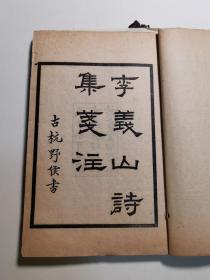 李義山詩
集箋注
古杭野侯書